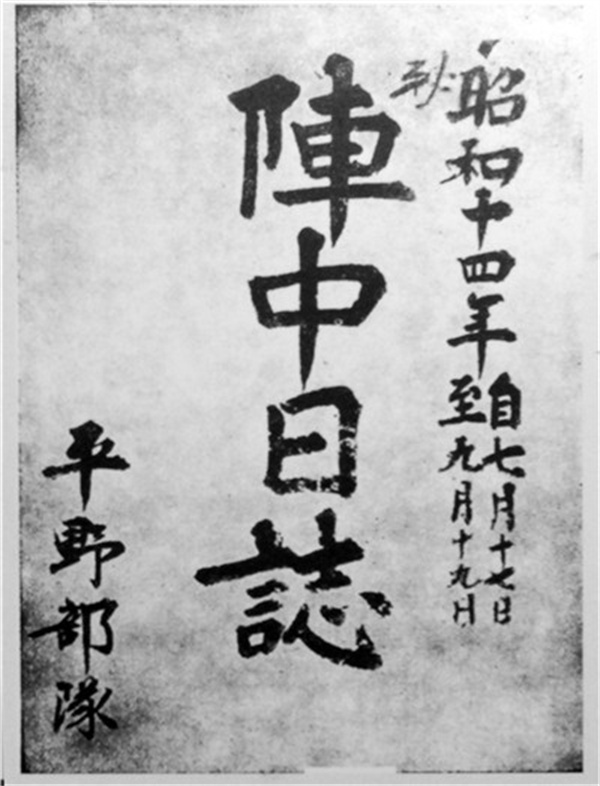 昭和十四年
自七月十七日
至九月十九日
陣中日誌
平野部隊